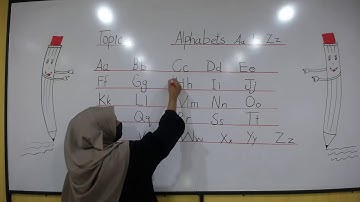 Topic Alphabets Aa Zz
Aa Bb Cc Dd Ee
Ff Gg Hh Ii Jj
Kk Ll Mm Nn Oo
Qq Rr Ss Tt
Xx Yy Zz